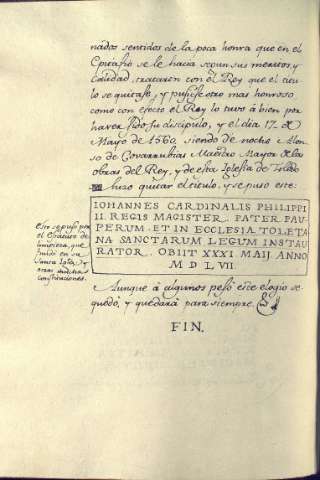 nados sentidos de la poca honra que en el
Epitafio se le hacia segun sus meritos, y
calidad, trataron con el Rey que el titu
lo se quitase, y pusiesse otro mas honroso
como con efecto el Rey lo tuvo à bien por
haver sido su discipulo, y el dia 17 de
Mayo de 1560 siendo de noche Alon
so de Covarrubias Maestro Mayor de las
obras del Rey, y de esta Iglesia de Toledo
hizo quitar el titulo, y se puso este:
IOHANNES CARDINALIS PHILIPPI
II. REGIS MAGISTER. PATER PAU
PERUM. ET IN ECCLESIA TOLETA
NA SANCTARUM LEGUM INSTAU
RATOR. OBIIT XXXI. MAIJ ANNO
M D L VII.
esto se puso por
el Estatuto de
limpieza, que
hizo en su
Santa Iglesia, y
otras muchas
constituciones.
Aunque à algunos pesò este elogio se
quedò, y quedarà para siempre.
FIN.